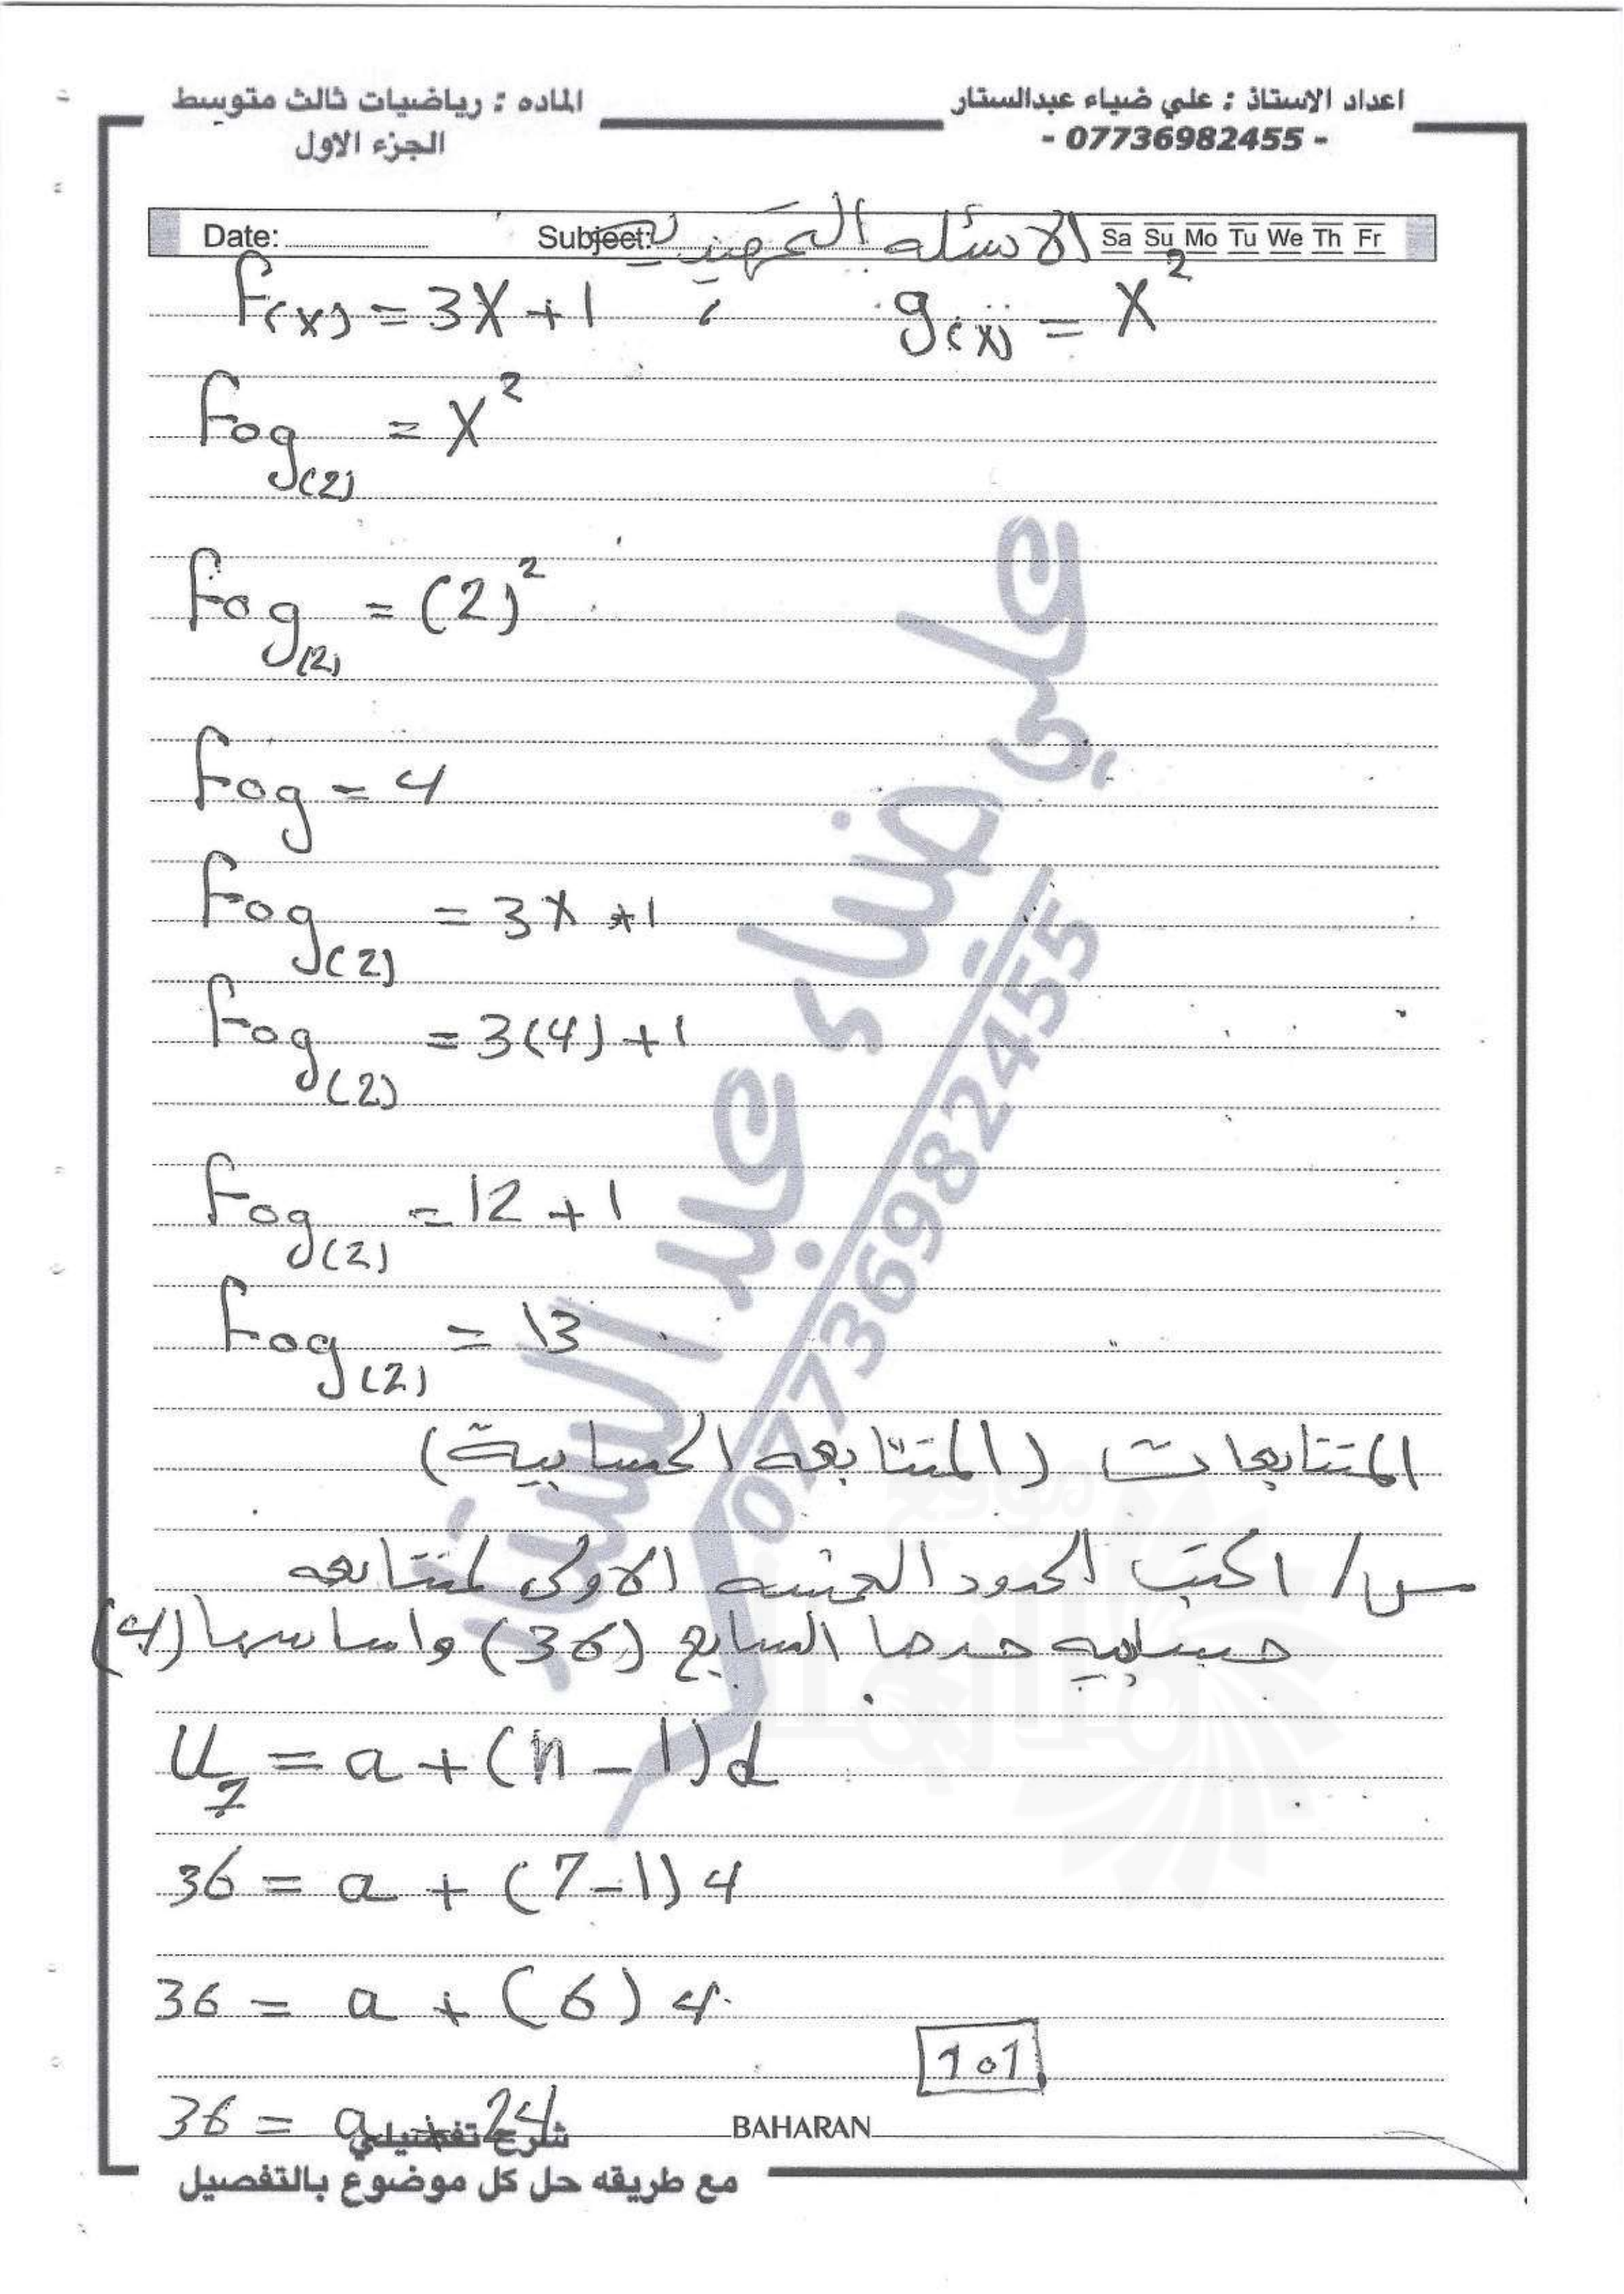 اعداد الاستاذ : علي ضياء عبدالستار
- 07736982455 -
الماده : رياضيات ثالث متوسط
الجزء الاول
Date: Subject: Sa Su Mo Tu We Th Fr
الاسئله التمهيديه
f(x) = 3X + 1 , g(x) = X²
fog(2) = X²
fog(2) = (2)²
fog = 4
fog(2) = 3X + 1
fog(2) = 3(4) + 1
fog(2) = 12 + 1
fog(2) = 13
المتتابعات (المتتابعه الحسابية)
س/ اكتب الحدود الخمسه الاولى لمتتابعه
حسابيه حدها السابع (36) واساسها (4)
U₇ = a + (n - 1) d
36 = a + (7 - 1) 4
36 = a + (6) 4
101
36 = a + 24
BAHARAN
شرح تفصيلي
مع طريقه حل كل موضوع بالتفصيل
علي ضياء عبد الستار
07736982455